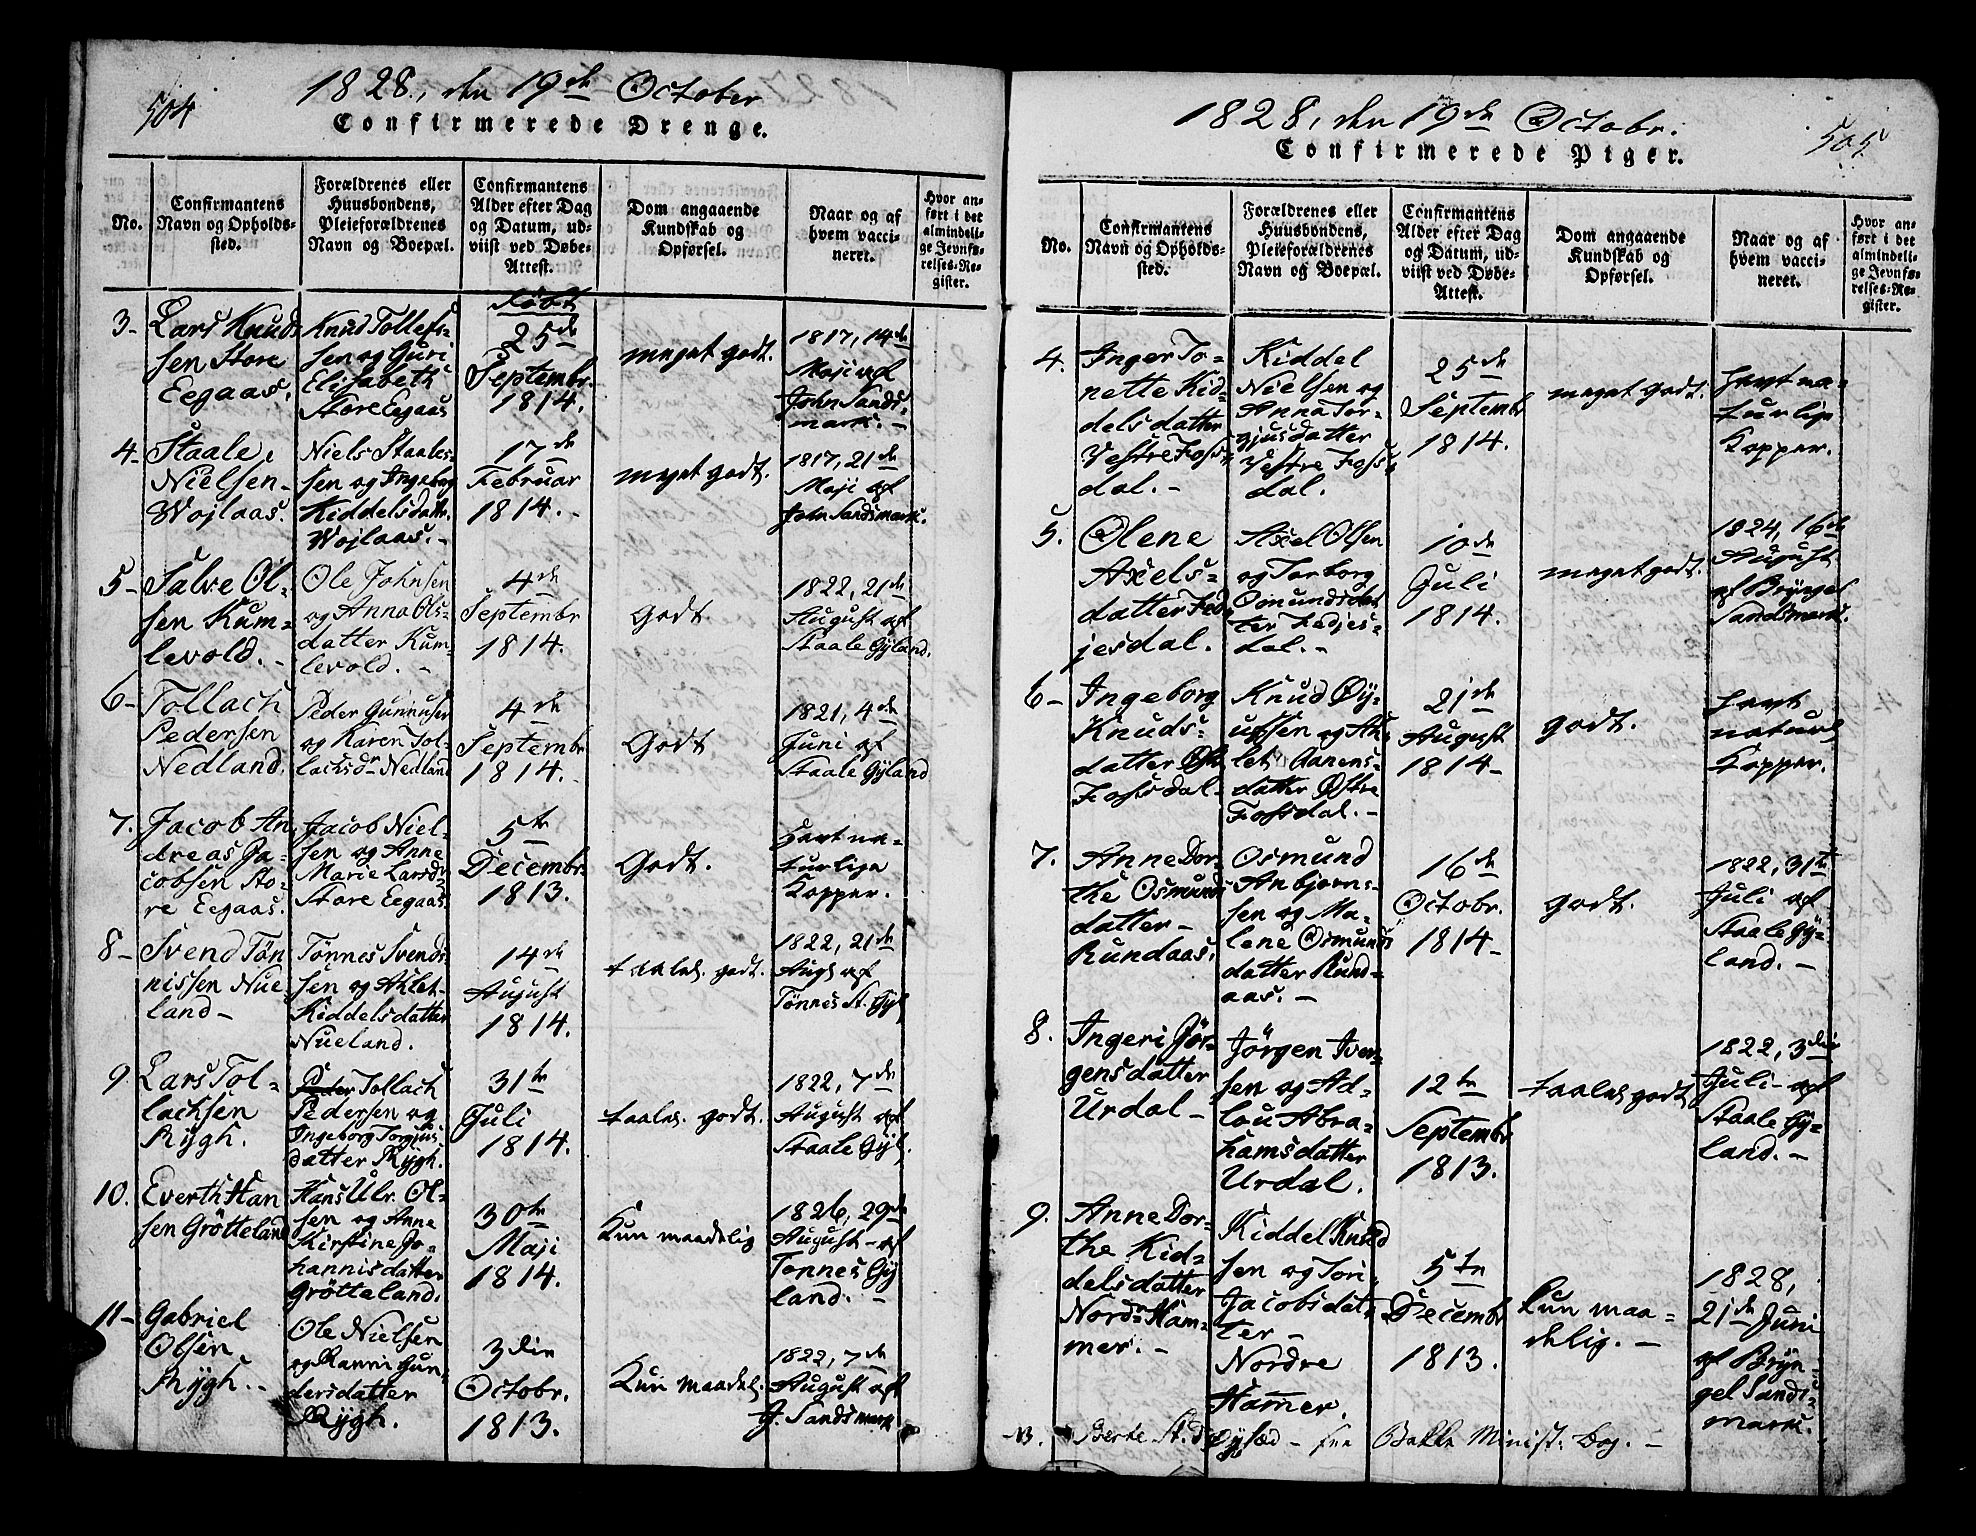 504
1828, den 19de October
Confirmerede Drenge.
No.
Confirmantens
Navn og Opholds-
sted.
Forældrenes eller
Huusbondens,
Pleieforældrenes
Navn og Boepæl.
Confirmantens
Alder efter Dag
og Datum, ud-
viist ved Døbe-
Attest.
Dom angaaende
Kundskab og
Opførsel.
Naar og af
hvem vacci-
neret.
Hvor an-
ført i det
almindeli-
ge Jevnfø-
relses-Re-
gister.
3-
Lars Knud-
sen Store
Eegaas.
Knud Tollefs-
sen og Guri
Elisabeth
Store Eegaas
Født
25de
Septembr.
1814.
meget godt.
1817, 14de
Maji af
John Sands-
mark. -
4-
Staale
Nielsen
Wojlaas.
Niels Staales-
sen og Ingeborg
Kiddelsdattr.
Wojlaas. -
17de
Februar
1814.
meget godt.
1817, 21de
Maji af
John Sandsmark.
5-
Salve Ol-
sen Kum-
levold. -
Ole Johnsen
og Anna Ols-
datter Kum-
levold. -
4de
Septembr
1814.
Godt
1822, 21de
August af
Staale Gyland.
6-
Tollach
Pedersen
Nedland.
Peder Gunnusen
og Karen Tol-
lachsdr Nedland
4de
Septembr
1814. -
Godt
1821, 4de
Juni af
Staale Gyland
7.
Jacob An-
dreas Ja-
cobsen Sto-
re Eegaas.
Jacob Niel-
sen og Anne
Marie Larsdr
Store Eegaas.
5te
Decembr.
1813.
Godt.
Havt na-
turlige
Kopper.
8-
Svend Tøn-
nissen Nue-
land -
Tønnes Svends-
sen og Ahlet
Kiddelsdatter
Nueland.
14de
August
1814.
taalel. godt.
1822, 21de
Augs af
Tønnes St. Gyl.
9.
Lars Tol-
lachsen
Rygh.
Peder Tollach
Pedersen og
Ingeborg Torgjus
datter Rygh.
31te
Juli
1814.
taalel. godt.
1822, 7de
August af
Staale Gyl.
10.
Everth Han
sen Grötteland
Hans Ulr. Ol-
sen og Anne
Kirstine Jo-
hannisdatter
Grötteland.
30te
Maji
1814.
Kun maadelig
1826, 29de
August - af
Tønnes Gy
land. -
11-
Gabriel
Olsen
Rygh. -
Ole Nielsen
og Ranni Gun
dersdatter
Rygh.
3die
Octobr.
1813.
Kun maadel.
1822, 7de
August af
J. Sandsmark
505
1828, den 19de Octobr.
Confirmerede Piger.
No.
Confirmantens
Navn og Opholds-
sted.
Forældrenes eller
Huusbondens,
Pleieforældrenes
Navn og Boepæl.
Confirmantens
Alder efter Dag
og Datum, ud-
viist ved Døbe-
Attest.
Dom angaaende
Kundskab og
Opførsel.
Naar og af
hvem vacci-
neret.
Hvor an-
ført i det
almindeli-
ge Jevnfø-
relses-Re-
gister.
4.
Inger To-
nette Kid-
delsdatter
Vestre Foss-
dal. -
Kiddel
Nielsen og
Anna Tor-
gjusdatter
Vestre Foss-
dal.
25de
Septembr
1814.
meget godt.
Havt na-
turlige
Kopper.
5.
Olene
Axels-
datter Fed-
jesdal.
Axel Olsen
og Torborg
Osmundsdat
ter Fedjes-
dal. -
10de
Juli
1814.
meget godt.
1824, 16de
August
af Bryngel
Sandsmark.
6-
Ingeborg
Knuds-
datter Øst
Fossdal -
Knud Øy-
ufsen og Ah-
let Aanens-
datter Østre
Fossdal. -
21de
August
1814 -
godt.
Havt
naturl
Kopper.
7.
Anne Dor-
the Osmunds
datter -
Rundaas.
Osmund
Anbjorns-
sen og Ma-
lene Osmunds
datter Rund-
aas. -
16de
Octobr.
1814 -
godt.
1822, 31te
Juli af
Staale Gy-
land. -
8.
Ingeri Jør-
gensdatter
Urdal -
Jörgen Iver-
sen og Ad-
lou Abra-
hamsdatter
Urdal.
12te
Septembr
1813.
taalel godt
1822, 3die
Juli - af
Staale Gy-
land. -
9.
Anne Dor-
the Kid-
delsdatter
Nordr Ham-
mer. -
Kiddel Knud
sen og Tori
Jacobsdat-
ter -
Nordre
Hamer.
5te
Decembr
1813.
Kun maa-
delig. -
1828,
21de Juni
af Bryn-
gel Sands-
mark.
13. Berte St. d. Øysæd - see Bakke Minist. bog. -